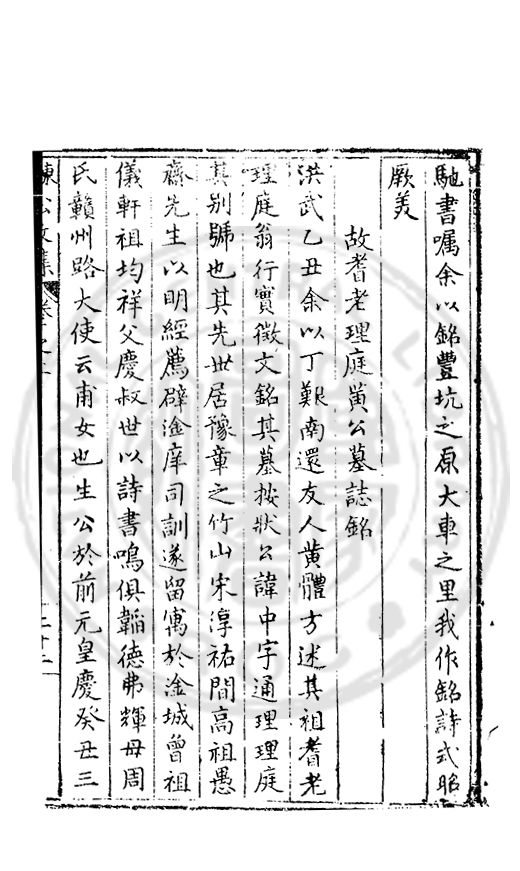 馳書嘱余以銘豐坑之原大車之里我作銘詩式昭
厥美
故耆老理庭黄公墓誌銘
洪武乙丑余以丁艱南還友人黄體方述其祖耆老
理庭翁行實徵文銘其墓按狀公諱中字通理理庭
其别號也其先世居豫章之竹山宋淳祐間高祖愚
齋先生以明經薦辟淦庠司訓遂留寓於淦城曾祖
儀軒祖均祥父慶叔世以詩書鳴俱韜德弗輝母周
氏贛州路大使云甫女也生公於前元皇慶癸丑三